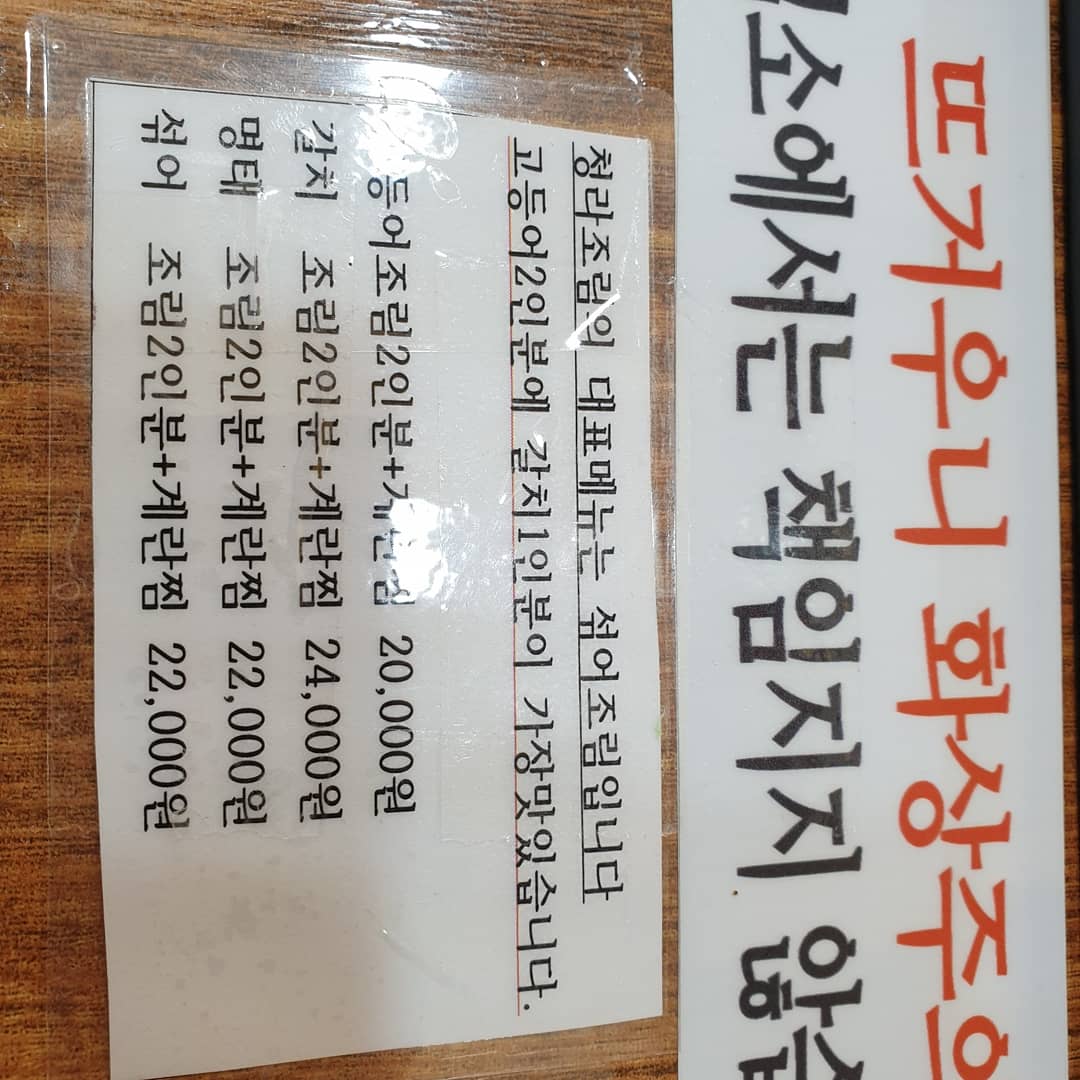 뜨거우니 화상주의
업소에서는 책임지지 않습
청라조림의 대표메뉴는 섞어조림입니다
고등어2인분에 갈치1인분이 가장맛있습니다.
고등어조림2인분+계란찜 20,000원
갈치 조림2인분+계란찜 24,000원
명태 조림2인분+계란찜 22,000원
섞어 조림2인분+계란찜 22,000원